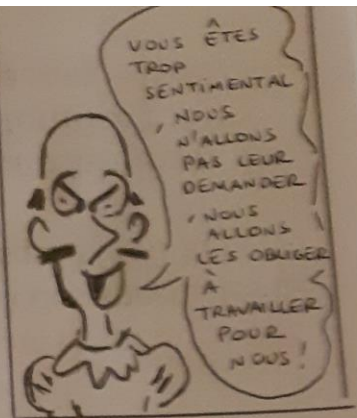 VOUS ÊTES
TROP
SENTIMENTAL
, NOUS
N'ALLONS
PAS LEUR
DEMANDER
, NOUS
ALLONS
LES OBLIGER
À
TRAVAILLER
POUR
NOUS !